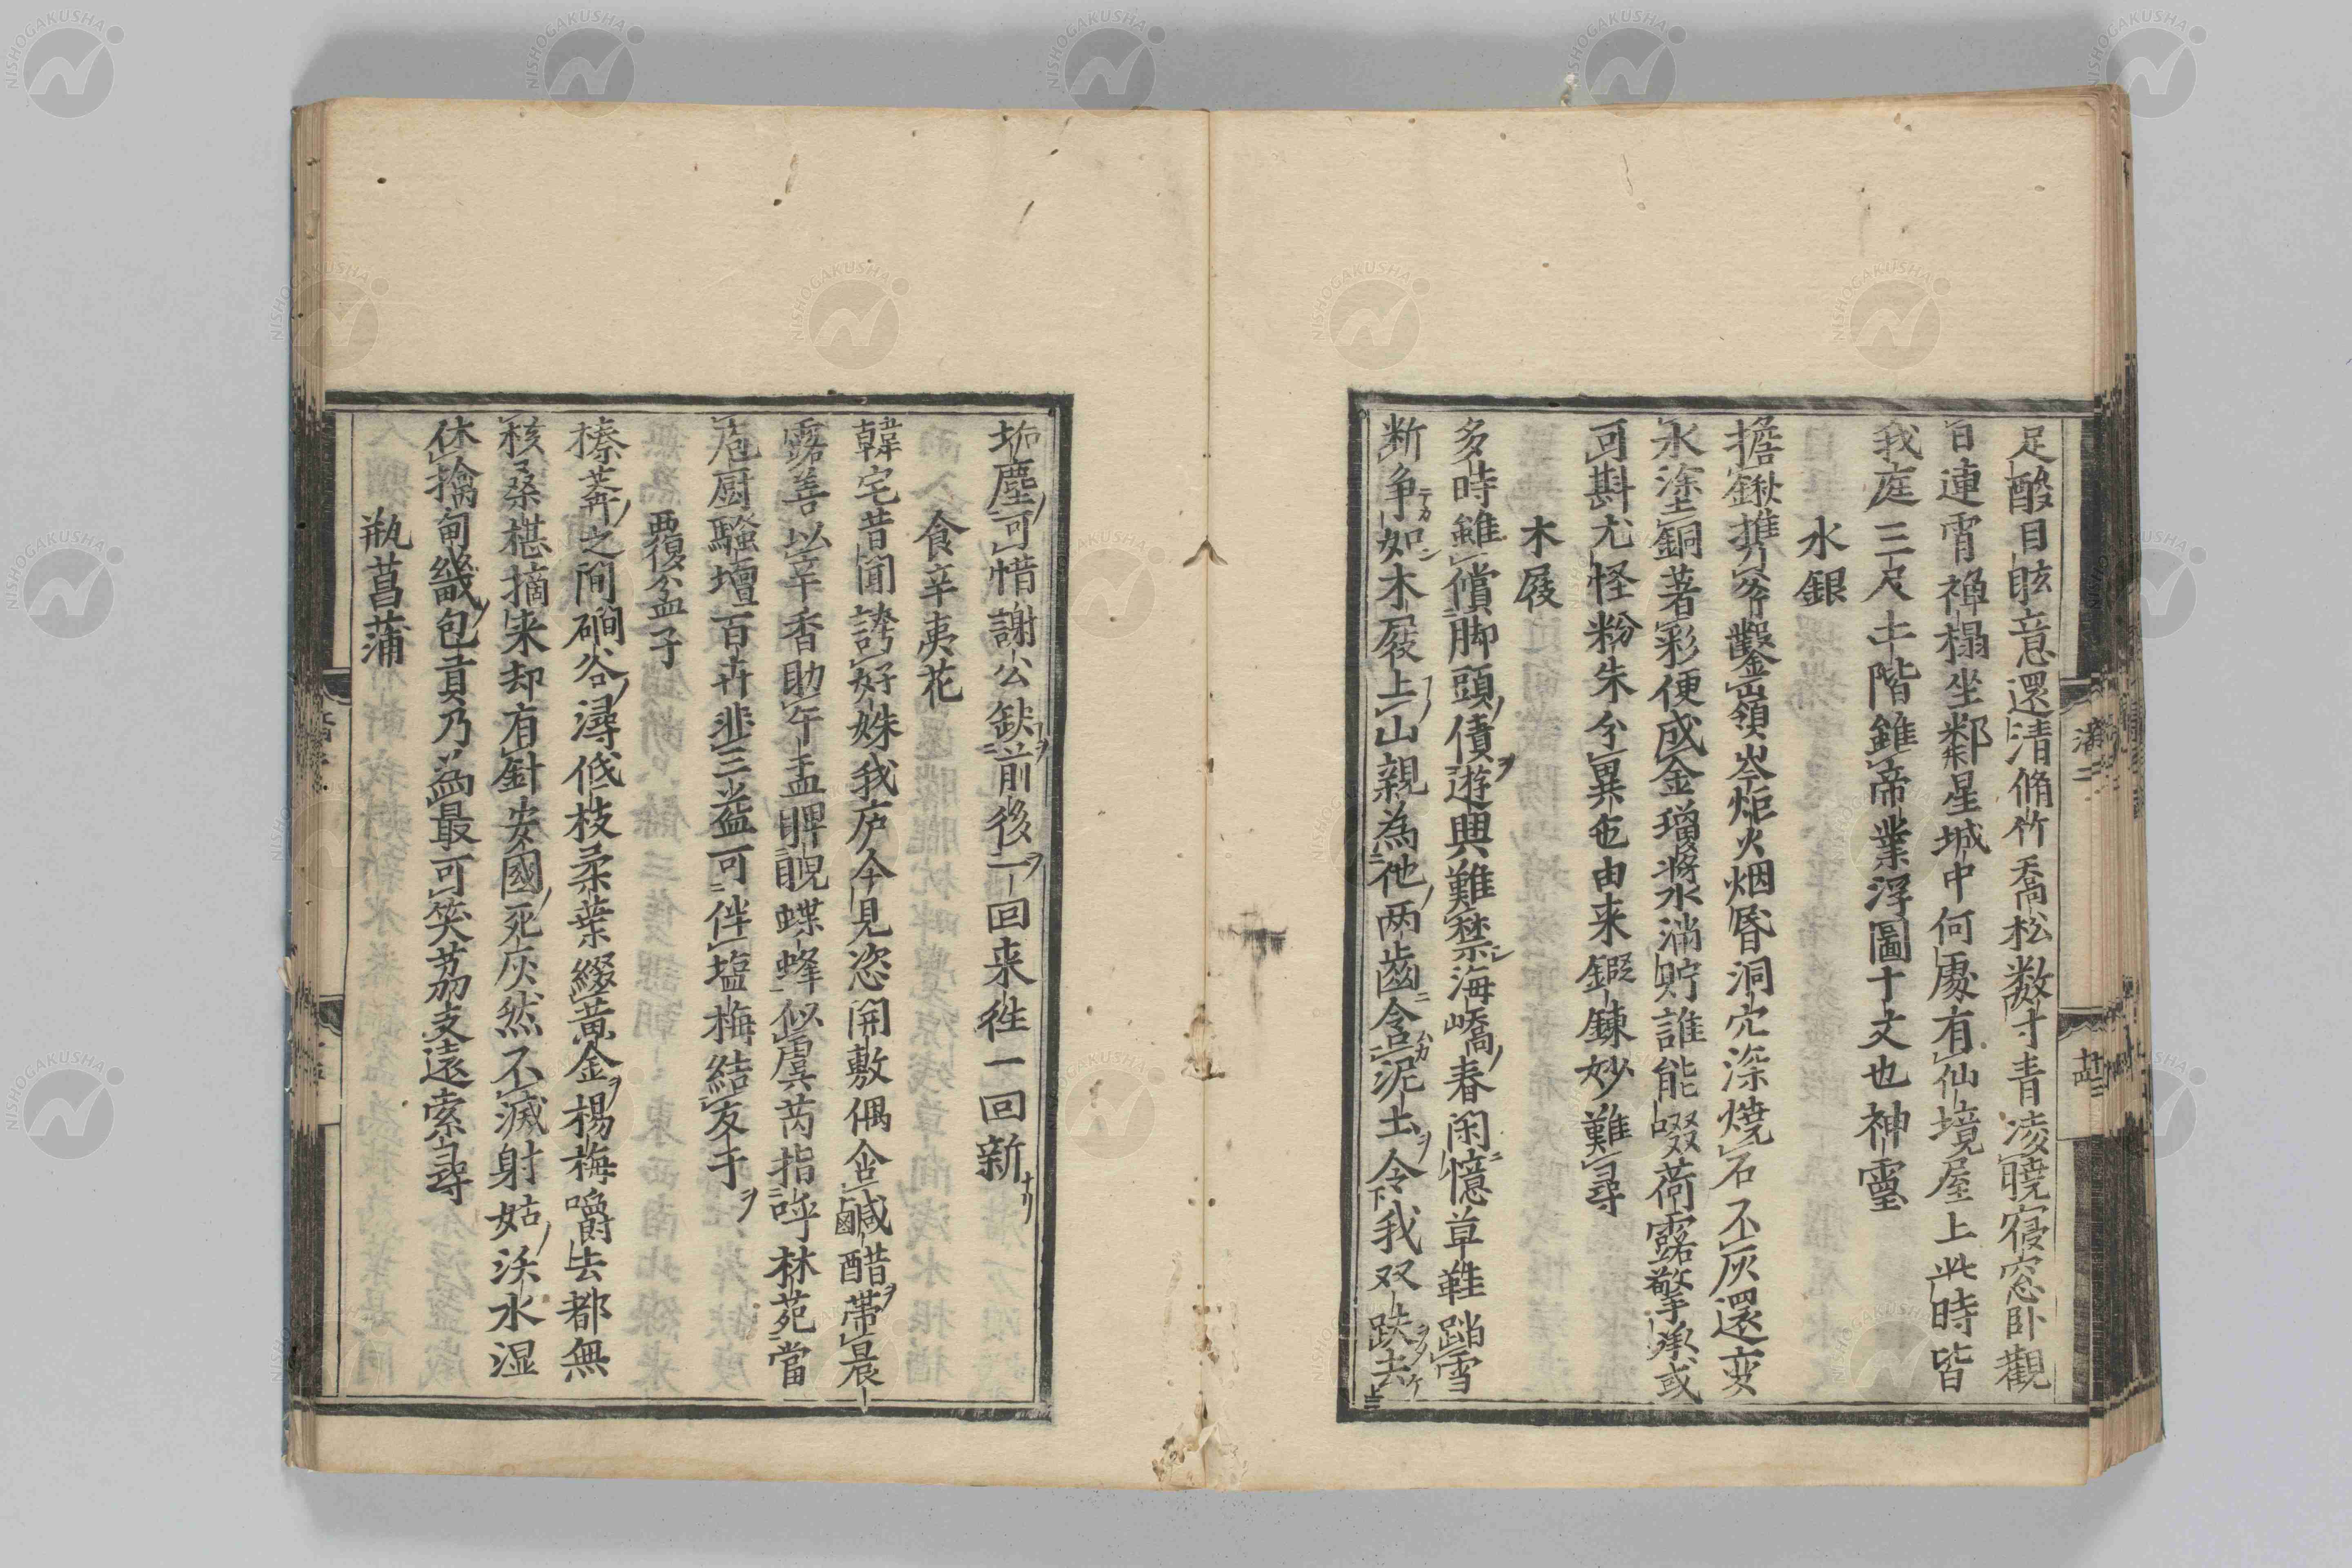 足酸目眩意還清脩竹喬松数寸青凌曉寝窓卧觀
百連宵禅榻坐鄰星城中何處有仙境屋上此時皆
我庭三尺土階雖帝業浮圖十丈也神靈
水銀
擔鍬携斧鑿嵓嶺岑炬火烟昏洞穴深燒石不灰還变
水塗銅著彩便成金瑠將水滿貯誰能啜荷露擎承或
可斟尤怪粉朱分異色由来鍜錬妙難尋
木屐
多時雖償脚頭債遊興難禁海嶠春閑憶草鞋踏雪
断争如木屐上山親為他两齒含泥土令我双趺去
垢塵可惜謝公缺前後一回来徃一回新
食辛夷花
韓宅昔聞誇好姝我庐今見恣開敷偶含鹹醋帶晨
露善以辛香助午盂睥睨蝶蜂似虞芮指呼林苑當
庖厨騷壇百卉非三益可伴塩梅結友于
覆盆子
榛莾之間磵谷潯低枝柔葉綴黄金楊梅嚼去都無
核桑椹摘来却有針安國死灰然不滅射姑沃水湿
休擒甸畿包貢乃爲最可笑茘支遠索尋
瓶菖蒲